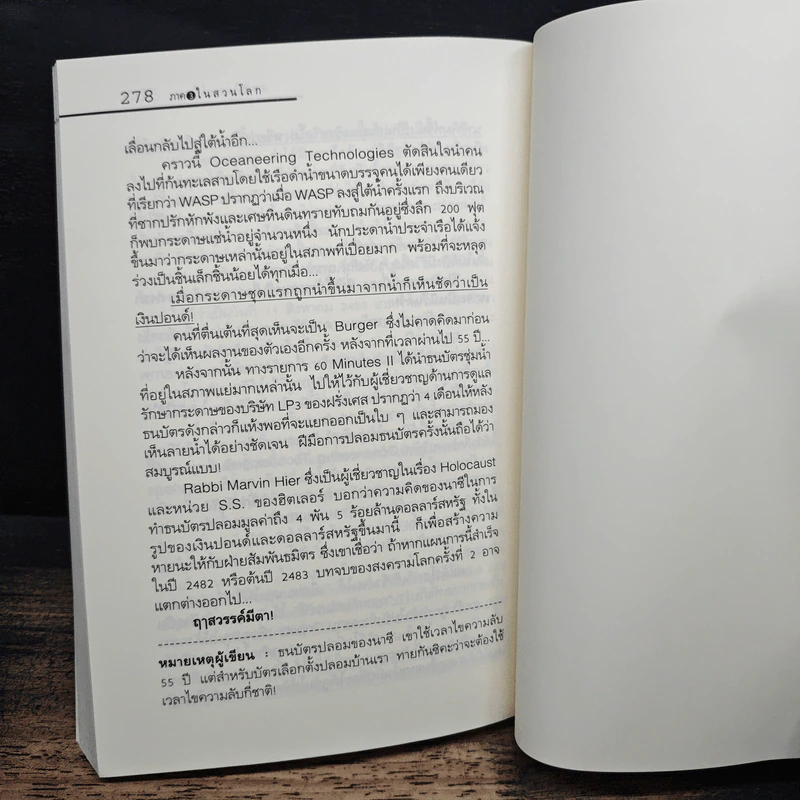 278 ภาค❸ในสวนโลก
เลื่อนกลับไปสู่ใต้น้ำอีก...
คราวนี้ Oceaneering Technologies ตัดสินใจนำคน
ลงไปที่ก้นทะเลสาบโดยใช้เรือดำน้ำขนาดบรรจุคนได้เพียงคนเดียว
ที่เรียกว่า WASP ปรากฏว่าเมื่อ WASP ลงสู่ใต้น้ำครั้งแรก ถึงบริเวณ
ที่ซากปรักหักพังและเศษหินดินทรายทับถมกันอยู่ซึ่งลึก 200 ฟุต
ก็พบกระดาษแช่น้ำอยู่จำนวนหนึ่ง นักประดาน้ำประจำเรือได้แจ้ง
ขึ้นมาว่ากระดาษเหล่านั้นอยู่ในสภาพที่เปื่อยมาก พร้อมที่จะหลุด
ร่วงเป็นชิ้นเล็กชิ้นน้อยได้ทุกเมื่อ...
เมื่อกระดาษชุดแรกถูกนำขึ้นมาจากน้ำก็เห็นชัดว่าเป็น
เงินปอนด์!
คนที่ตื่นเต้นที่สุดเห็นจะเป็น Burger ซึ่งไม่คาดคิดมาก่อน
ว่าจะได้เห็นผลงานของตัวเองอีกครั้ง หลังจากที่เวลาผ่านไป 55 ปี...
หลังจากนั้น ทางรายการ 60 Minutes II ได้นำธนบัตรชุ่มน้ำ
ที่อยู่ในสภาพแย่มากเหล่านั้น ไปให้ไว้กับผู้เชี่ยวชาญด้านการดูแล
รักษากระดาษของบริษัท LP3 ของฝรั่งเศส ปรากฏว่า 4 เดือนให้หลัง
ธนบัตรดังกล่าวก็แห้งพอที่จะแยกออกเป็นใบ ๆ และสามารถมอง
เห็นลายน้ำได้อย่างชัดเจน ฝีมือการปลอมธนบัตรครั้งนั้นถือได้ว่า
สมบูรณ์แบบ!
Rabbi Marvin Hier ซึ่งเป็นผู้เชี่ยวชาญในเรื่อง Holocaust
และหน่วย S.S. ของฮิตเลอร์ บอกว่าความคิดของนาซีในการ
ทำธนบัตรปลอมมูลค่าถึง 4 พัน 5 ร้อยล้านดอลลาร์สหรัฐ ทั้งใน
รูปของเงินปอนด์และดอลลาร์สหรัฐขึ้นมานี้ ก็เพื่อสร้างความ
หายนะให้กับฝ่ายสัมพันธมิตร ซึ่งเขาเชื่อว่า ถ้าหากแผนการนี้สำเร็จ
ในปี 2482 หรือต้นปี 2483 บทจบของสงครามโลกครั้งที่ 2 อาจ
แตกต่างออกไป...
ฤๅสวรรค์มีตา!
หมายเหตุผู้เขียน : ธนบัตรปลอมของนาซี เขาใช้เวลาไขความลับ
55 ปี แต่สำหรับบัตรเลือกตั้งปลอมบ้านเรา ทายกันซิคะว่าจะต้องใช้
เวลาไขความลับกี่ชาติ!